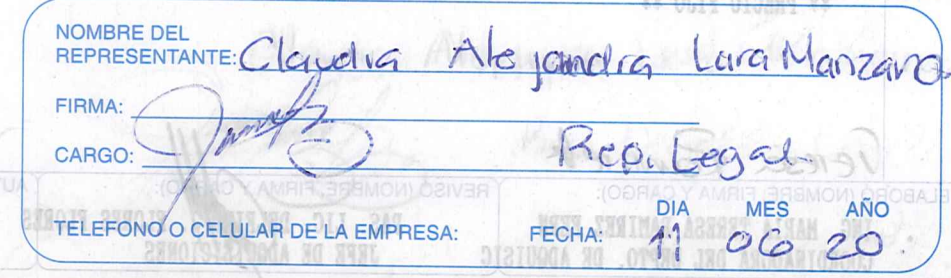 NOMBRE DEL
REPRESENTANTE: Claudia Alejandra Lara Manzano
FIRMA:
CARGO: Rep. Legal
DIA MES AÑO
TELEFONO O CELULAR DE LA EMPRESA: FECHA: 11 06 20